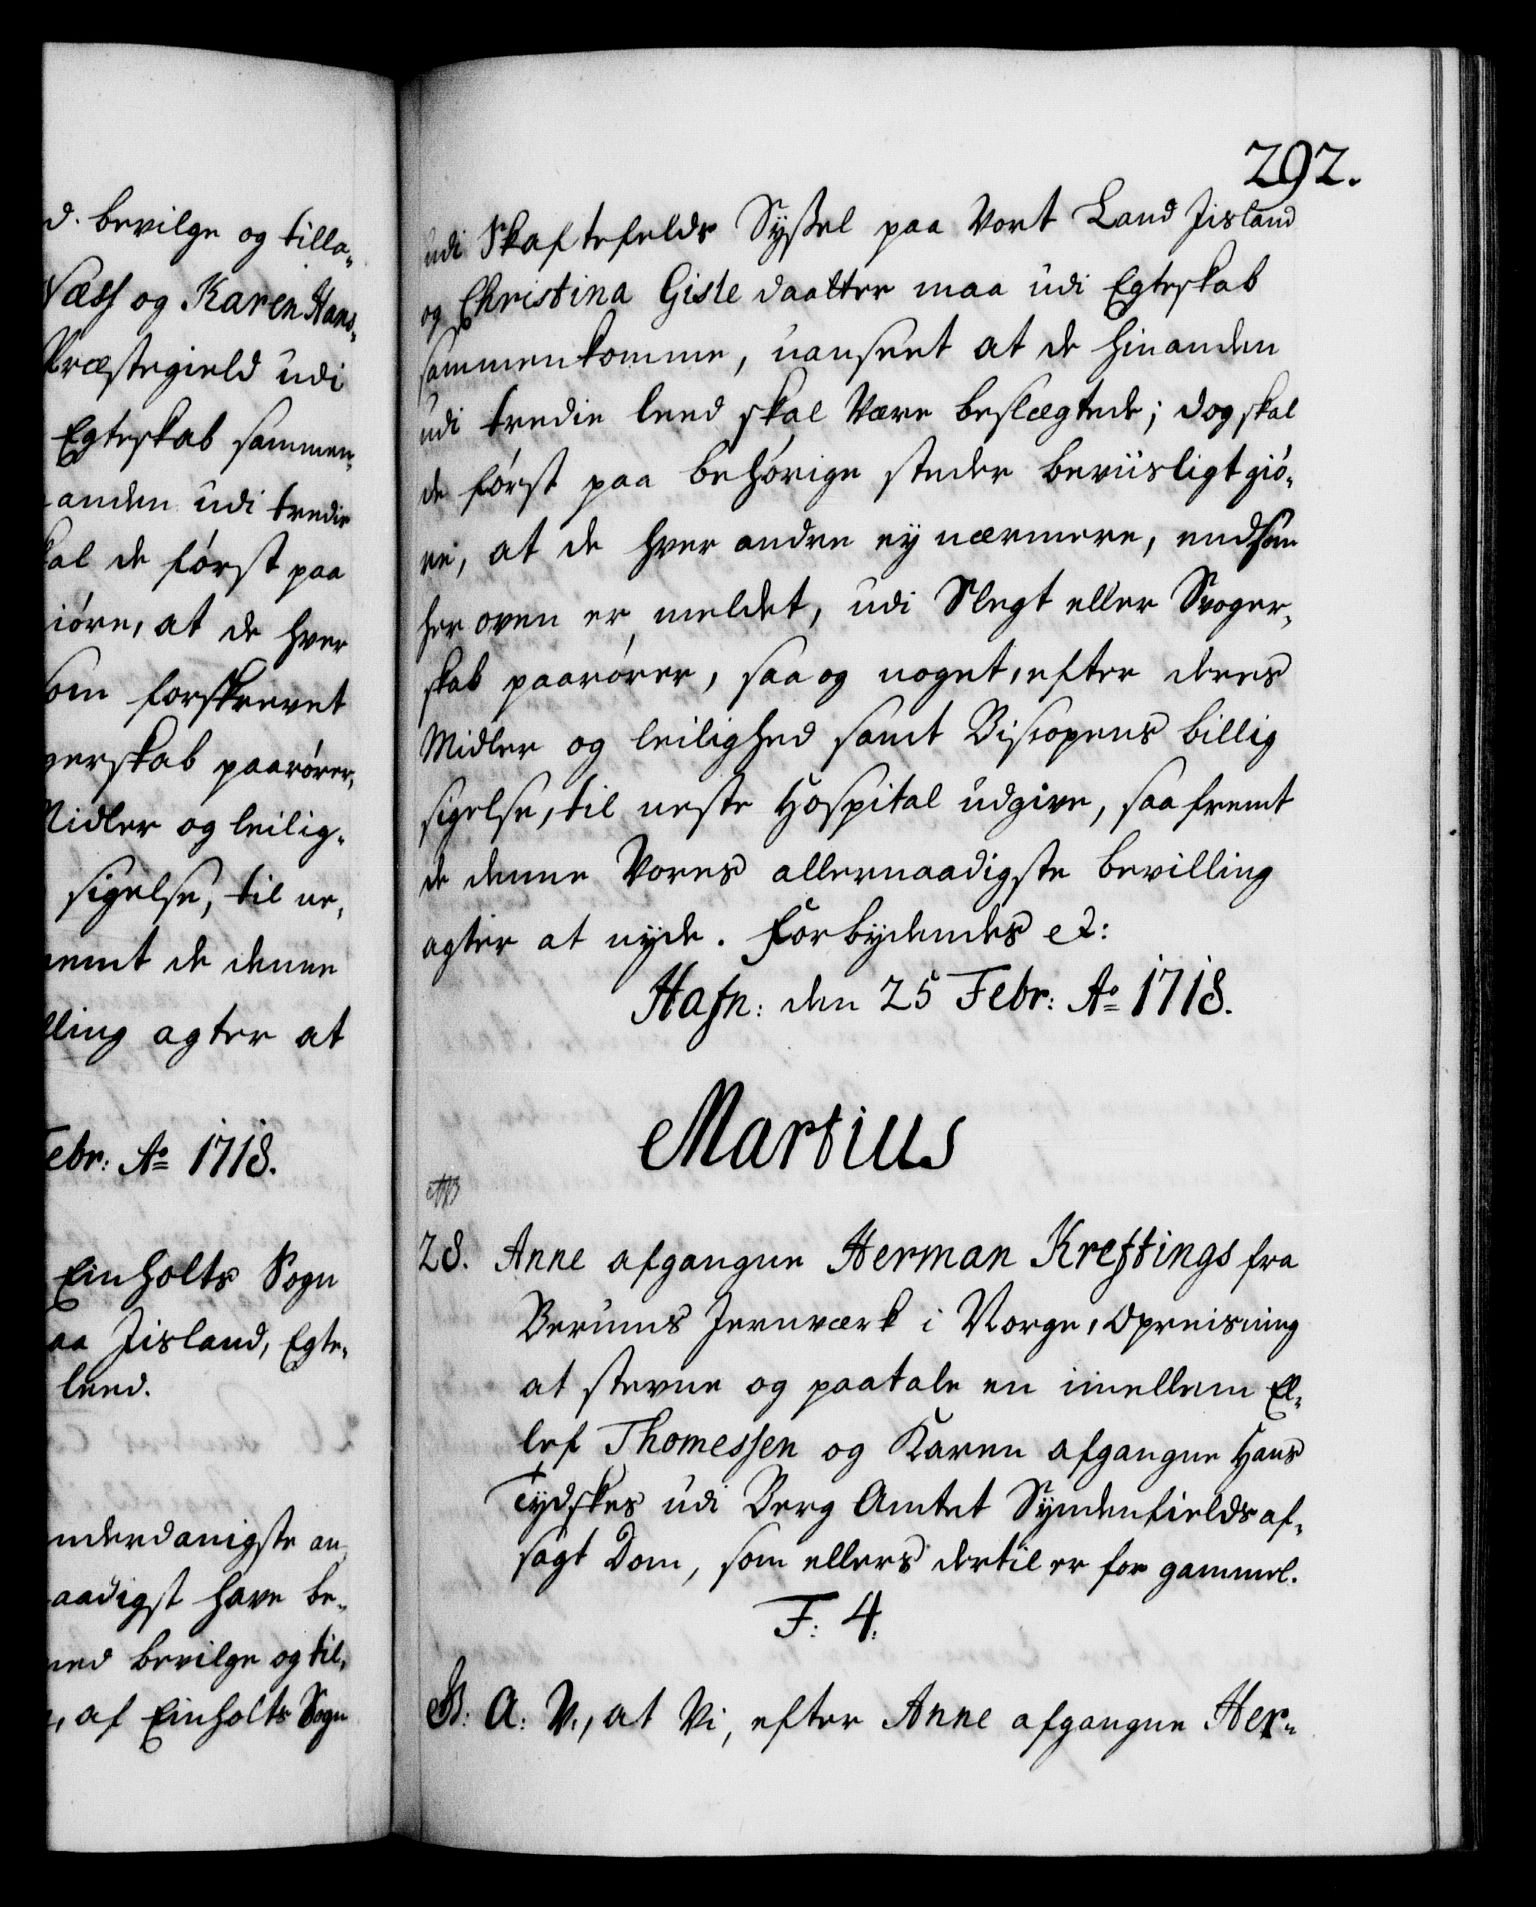 d. bevilge og tilla-
Næss og Karen Hans-
Præstegield udi
Egteskab sammen-
anden udi tredie
kal de først paa
iöre, at de hver
som forskrevet
gerskab paarörer,
Midler og leilig-
sigelse, til ne-
remt de denne
lling agter at
Febr: Ao 1718.
Einholts Sogn
aa Jisland, Egte-
leed.
nderdanigste an-
aadigst have be-
med bevilge og til-
, af Einholts Sogn
292.
udi Skaftefelds Syssel paa Vort Land Jisland
og Christina Gisle daatter maa udi Egteskab
sammenkomme, uanseet at de hinanden
udi tredie leed skal Være beslægtede; dog skal
de först paa behörige steder beviisligt giö-
re, at de hver andre ey nærmere, end som
her oven er meldet, udi Slegt eller Svoger-
skab paarörer, saa og noget, efter deres
Midler og leilighed samt Biscopens billig
sigelse, til neste Hospital udgive, saa fremt
de denne Vores allernaadigste bevilling
agter at nyde. Forbydendes etc:
Hafn: den 25 Febr: Ao 1718.
Martius
28. Anne afgangne Herman Kreftings fra
Berums Jernværk i Norge, Opreisning
at stevne og paatale en imellem El-
lef Thomessen og Karen afgangne Hans
Tydskes udi Berg Amtet Syndenfields af-
sagt Dom, som ellers dertil er for gammel.
F: 4.
G: A: V:, at Vi, efter Anne afgangne Her-